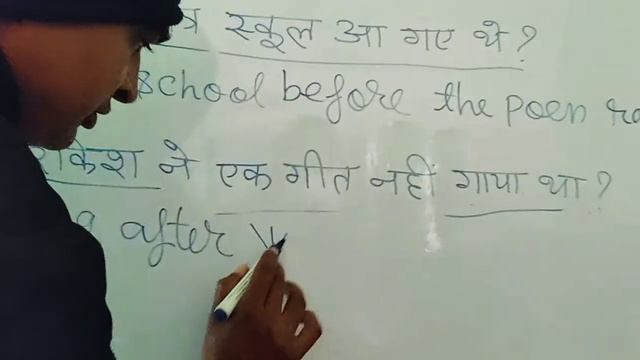 स्कूल आ गए थे?
school before the poen
राकेश ने एक गीत नहीं गाया था?
after